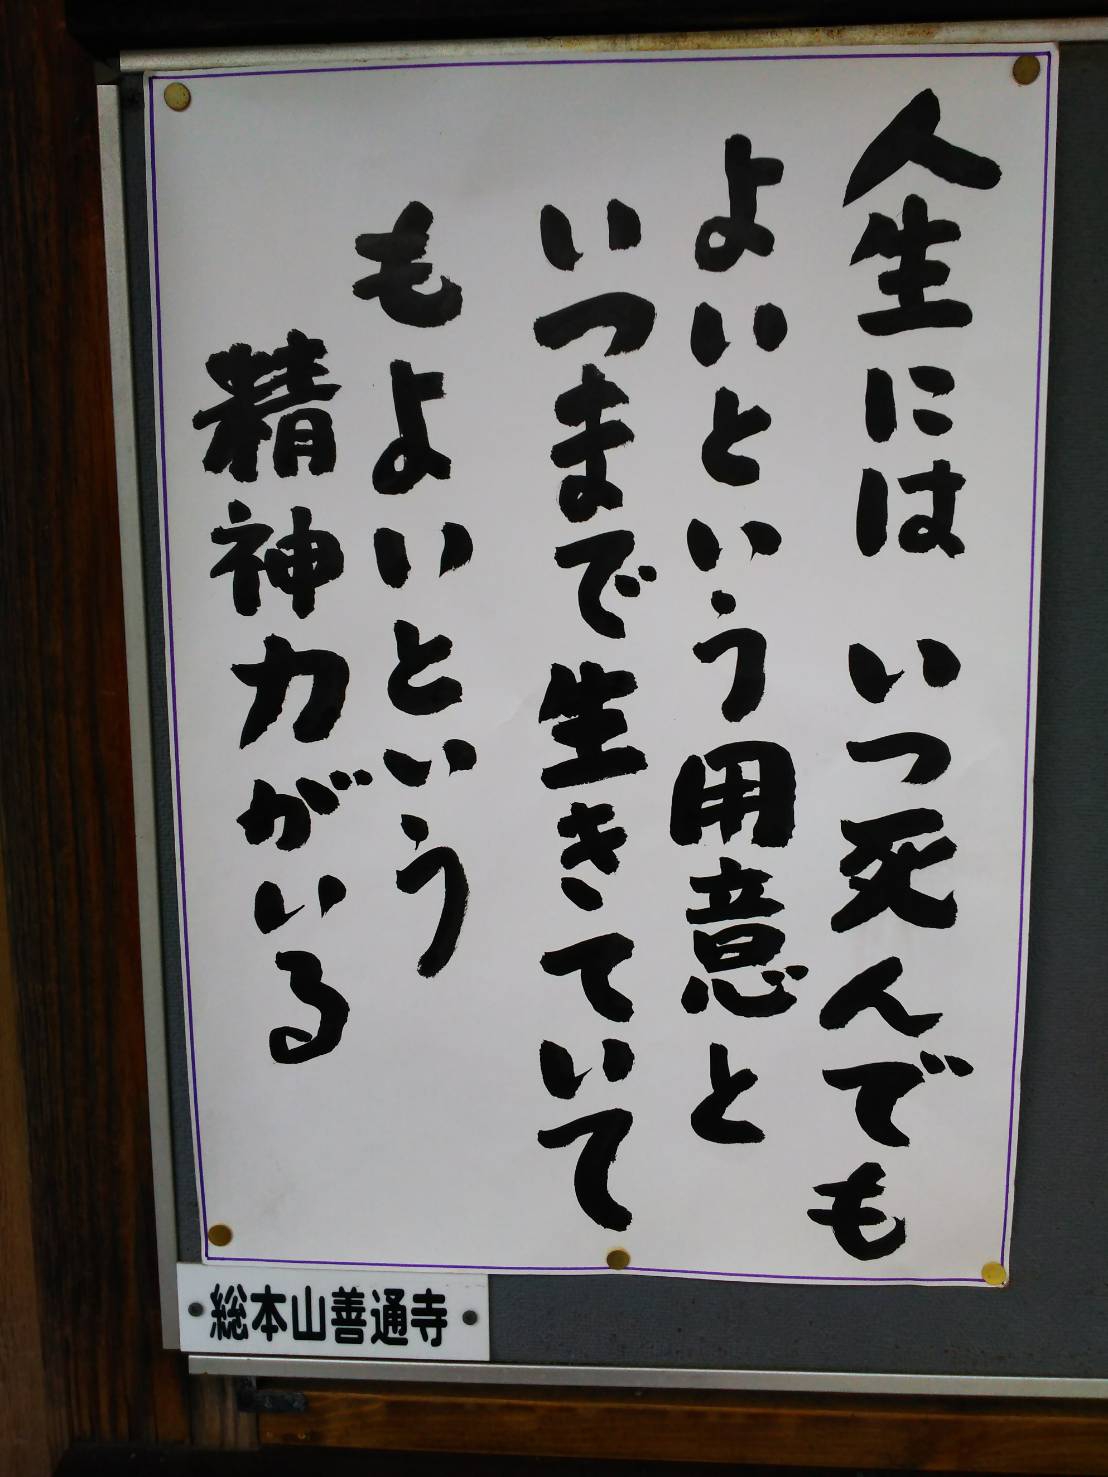 人生には いつ死んでも
よいという用意と
いつまで生きていて
もよいという
精神力がいる
総本山善通寺